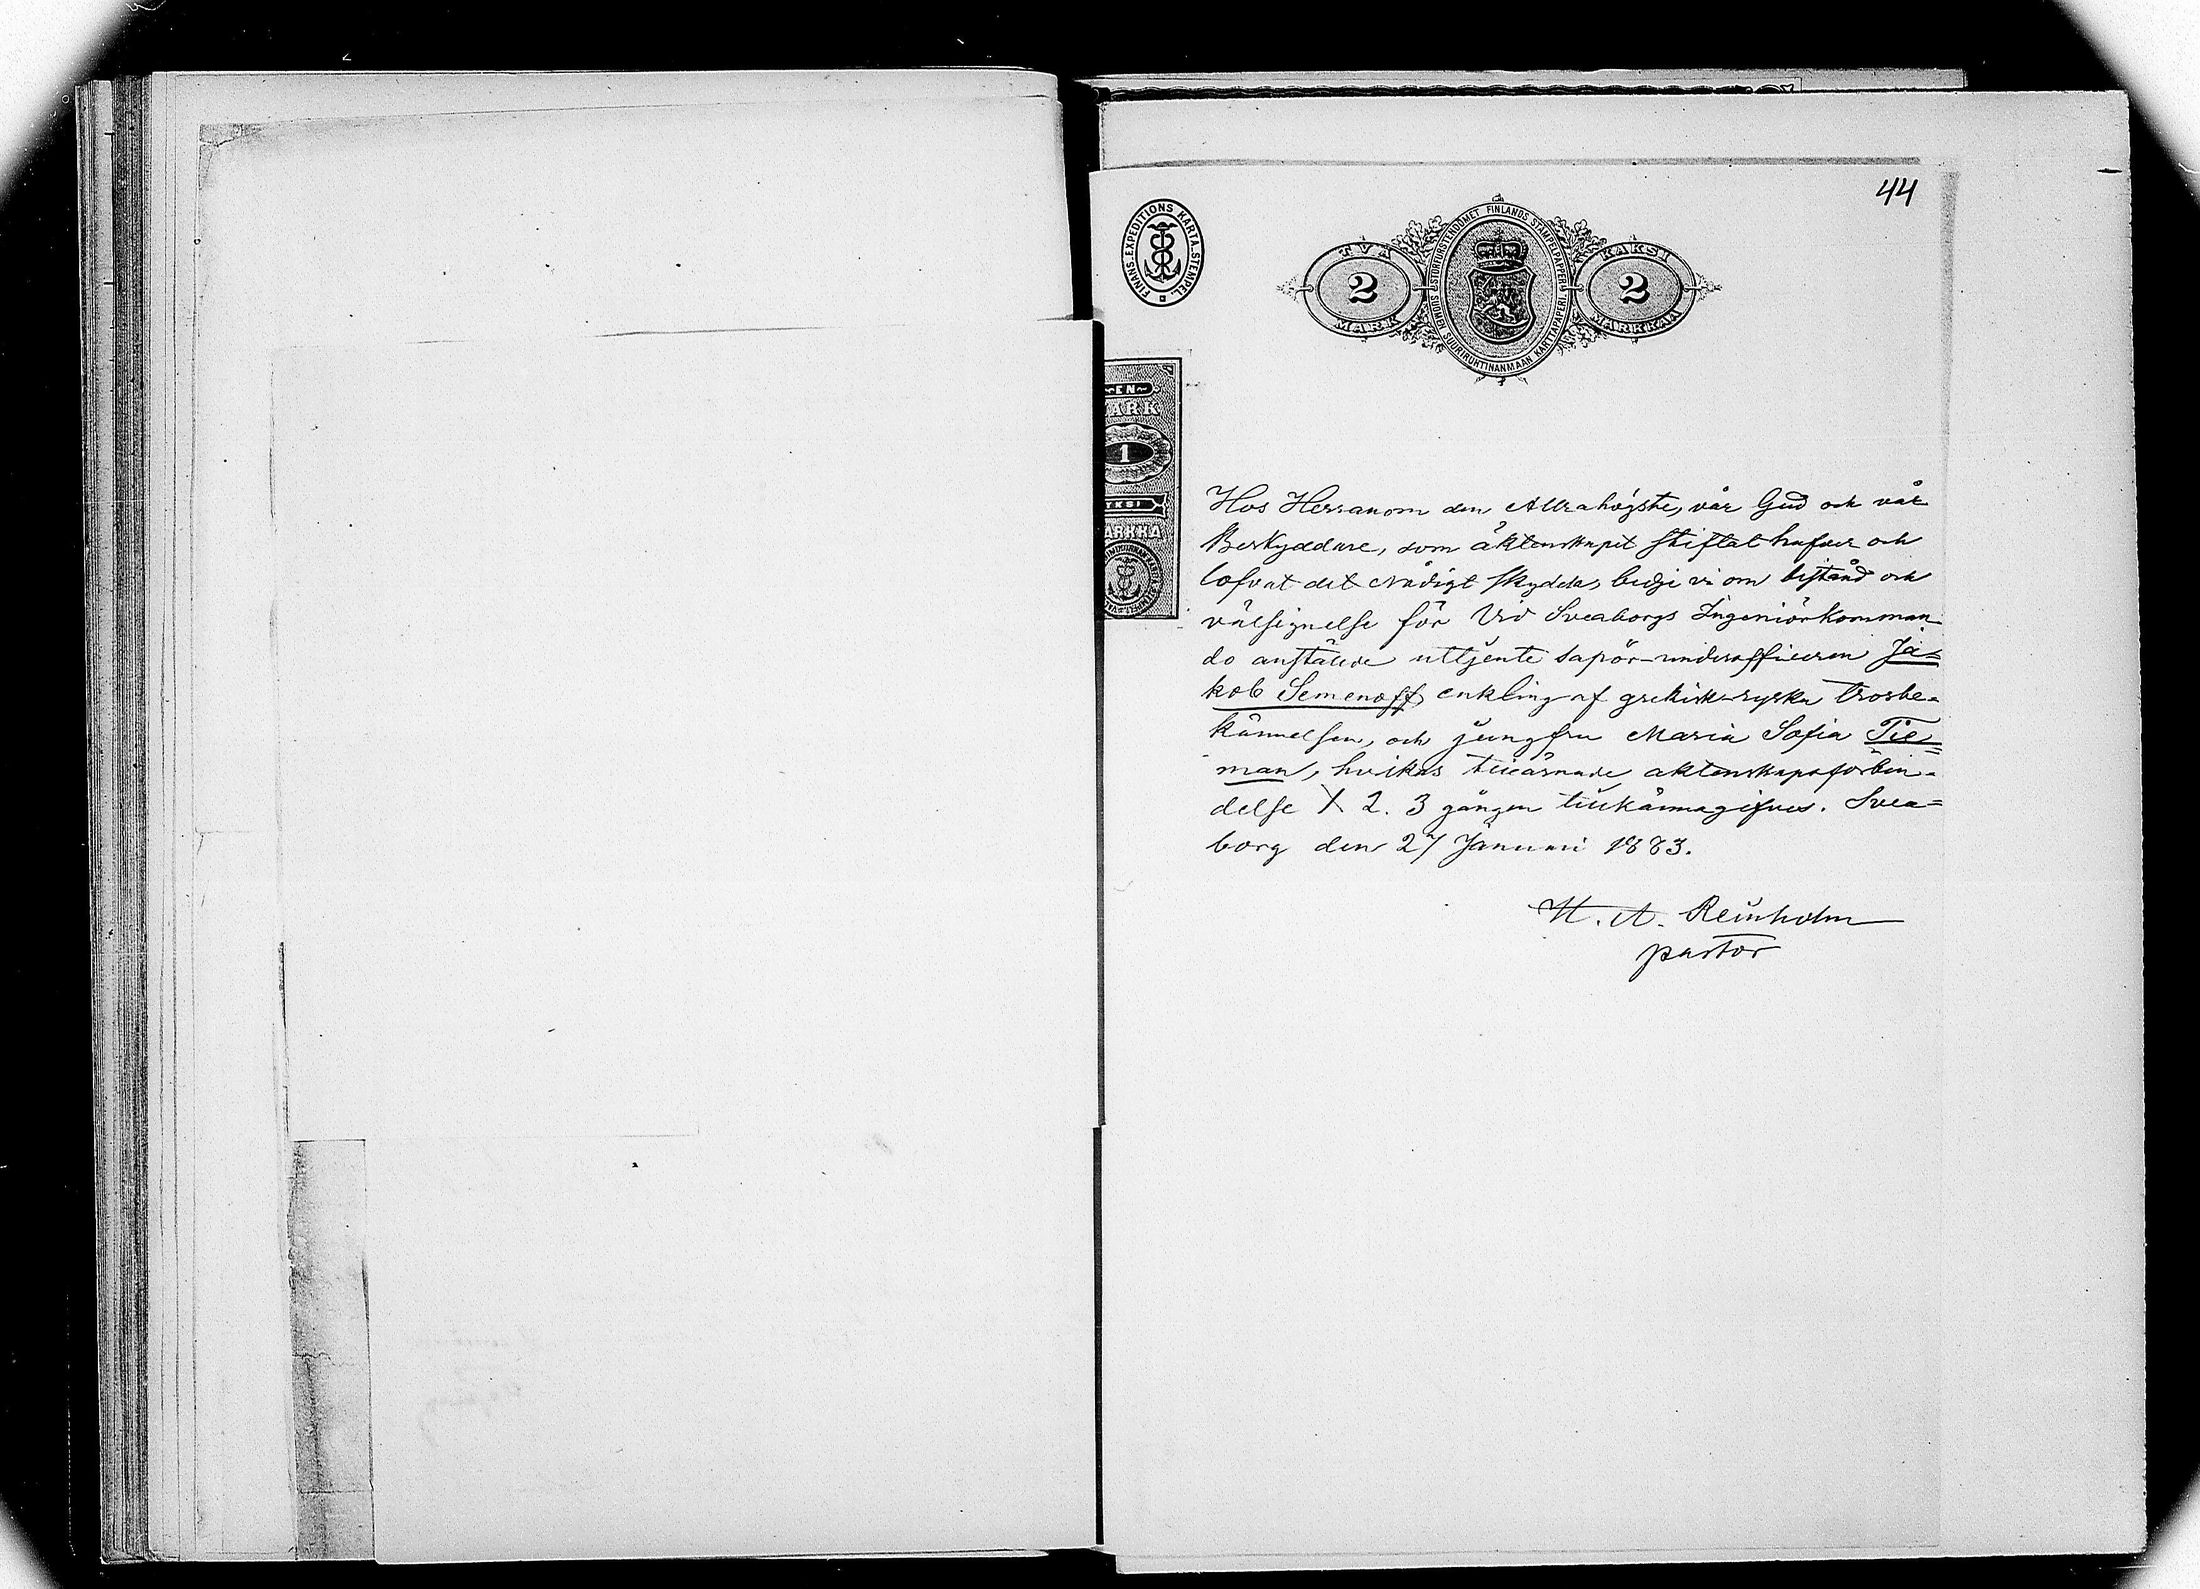 44
FINANS.EXPEDITIONS KARTA.STEMPEL.
STORFURSTENDÖMET FINLANDS STÄMPELPAPPER
SUOMEN SUURIRUHTINANMAAN KARTTAPAPERI
TVÅ 2 MARK
KAKSI 2 MARKKAA
EN
ARK
1
YKSI
ARKKA
Hos Herranom den Allrahögste, vår Gud och vår
Beskyddare, som äktenskapet stiftat hafver och
lofvat det Nådigt skydda, bedje vi om bistånd och
välsignelse för Vid Sveaborgs Ingeniörkomman
do anstälde uttjente sapör-underofficeren Ja=
kob Semenoff, enkling af grekisk-ryska trosbe=
kännelsen, och jungfru Maria Sofia Tie=
man, hvilkas tillärnade äktenskapsförbin=
delse 1 2. 3 gången tillkännagifves. Svea=
borg den 27 Januari 1883.
H. A. Reinholm
pastor